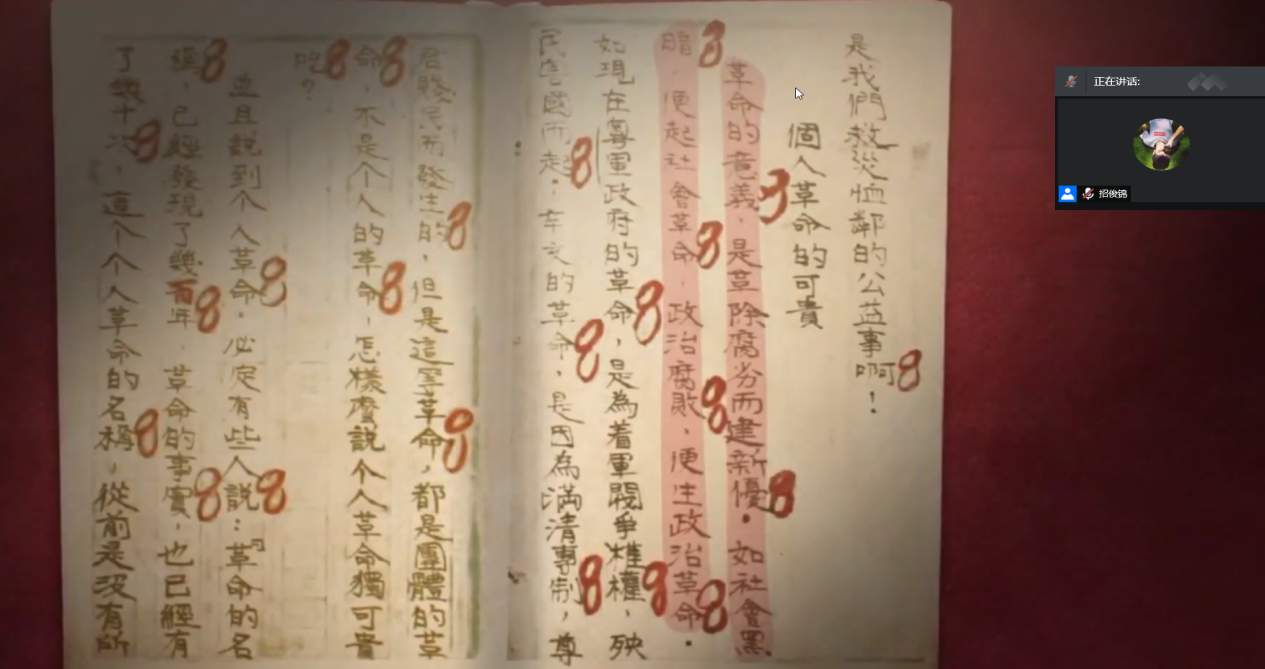 是我們救災恤鄰的公益事啊!
個人革命的可貴
革命的意義,是革除腐劣而建新優。如社會黑
暗,便起社會革命,政治腐敗,便生政治革命。
如現在粵軍政府的革命,是為着軍閥爭權,殃
民
國而起;辛亥的革命,是因為滿清專制,尊
君賤民而發生的,但是這等革命,都是團體的革
命,不是个人的革命,怎樣麼說个人革命獨可貴
呢?
並且說到个人革命,必定有些人說:「革命的名
,已經發現了幾百年,革命的事實,也已經有
了幾十次,這个个人革命的名稱,從前是沒有所
正在讲话:
招俊锦